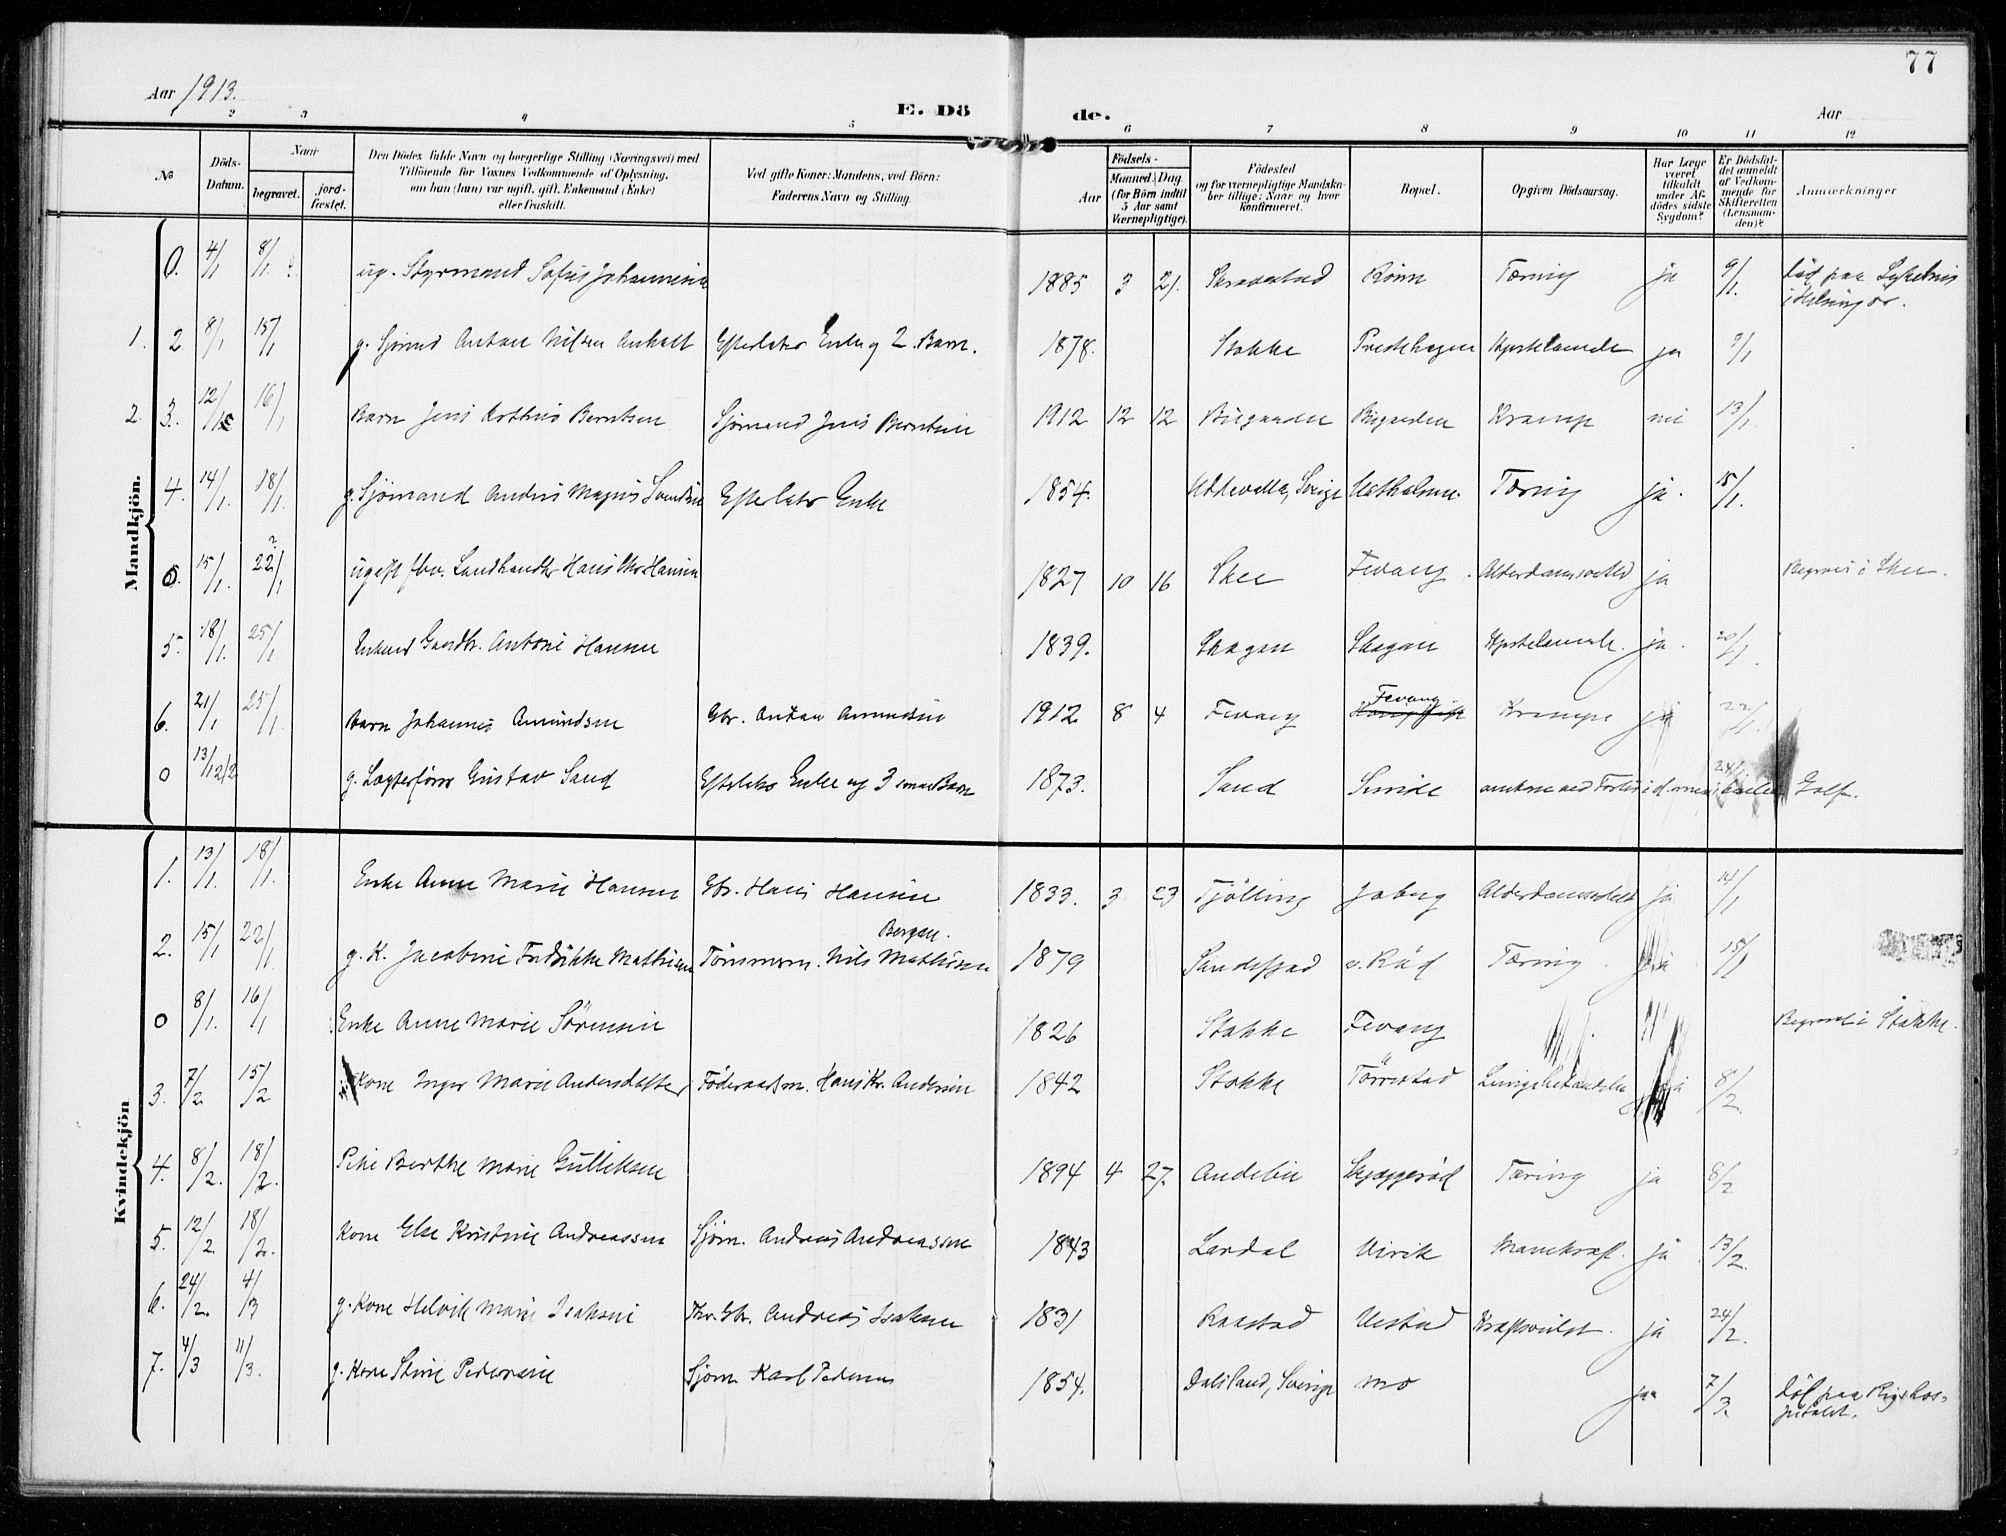 77
Aar 1913.
E. Dö
de.
Aar
1 2 3 4 5 6 7 8 9 10 11 12
No
Döds-Datum.
Naar
begravet.
jord-fæstet.
Den Dödes fulde Navn og borgerlige Stilling (Næringsvei) med Tilföiende for Voxnes Vedkommende af Oplysning, om han (hun) var ugift, gift, Enkemand (Enke) eller fraskilt.
Ved gifte Koner: Mandens, ved Börn: Faderens Navn og Stilling.
Födsels-
Aar
Maaned. Dag.
(for Börn indtil 5 Aar samt Værnepligtige).
Födested og for værnepligtige Mandskaber tillige: Naar og hvor konfirmeret.
Bopæl.
Opgiven Dödsaarsag.
Har Læge været tilkaldt under Afdödes sidste Sygdom?
Er Dödsfaldet anmeldt af Vedkommende for Skifteretten (Lensmanden)?
Anmærkninger
Mandkjön.
0. 4/1 8/1. ug. Styrmand Sofus Johannesen 1885 3 21. Skravestad Rönn Tæring ja 9/1. död paa Sykehus i Helsingør.
1. 2 8/1 15/1 g. Sjömd Anton Nilsen Anholt Efterlater Enke og 2 Barn. 1878. Stokke Prestehagen Hjertelamelse ja 9/1
2. 3. 12/1 16/1 Barn Jens Berntsen Sjömand Jens Berntsen 1912 12 12 Bugaarden Bugaarden Krampe nei 13/1
4. 14/1. 18/1. g. Sjömand Anders Magnus Svendsen Efterlater Enke 1854. Uddevalla, Sverige Vestholmen. Tæring ja. 15/1.
0. 15/1. 22/1 ? ugift fhv. Landhandler Hans Chr Hansen 1827 10 16 Skee Fevang. Alderdomssvakhed ja Begraves i Skee.
5. 18/1. 25/1. Enkemd Gaardbr. Antoni Hansen 1839. Skagen Skagen Hjertelamelse. ja. 20/1.
6. 21/1 25/1. Barn Johannes Amundsen Gbr. Anton Amundsen 1912 8 4 Fevang Fevang Krampe ja 22/1.
0 13/12 12 g. Logterförer Gustav Sand Efterlater Enke og 3 smaa Barn 1873. Sand Sunde omkom ved Forlis i d. mexikanske Golf. 24/1
Kvindekjön
1. 13/1. 18/1. Enke Anne Marie Hansen Gbr. Hans Hansen 1833. 3 23 Tjölling Jaberg Alderdomssvakhed ja 14/1
2. 15/1 22/1 g. K. Jacobine Fredrikke Mathisen Tömmerm. Nils Mathisen Bergan. 1879 Sandefjord v. Röd Tæring ja 15/1
0 8/1. 16/1 Enke Anne Marie Sörensen 1826 Stokke Fevang Begravet i Stokke.
3. 7/2 15/2 Kone Inger Marie Andersdatter Föderaadsm. Hans Kr. Andersen 1842 Stokke Törrestad Lungebetændelse ja 8/2.
4. 8/2. 18/2. Pike Berthe Marie Gulliksen 1894 4 27. Andebu Skjæggeröd Tæring ja 8/2
5. 12/2. 18/2. Kone Else Kristine Andreassen Sjöm. Andreas Andreassen 1843 Lardal Virik Mavekræft. ja 13/2.
6. 24/2. 4/3 g. Kone Helvik Marie Isaksen fhv. Gbr. Andreas Isaksen 1831 Raastad Vestad Kræftsvulst. ja 24/2.
7. 4/3 11/3. g. Kone Stine Pedersen Sjöm. Karl Pedersen 1854. Dalsland, Sverige Mo jaa 7/3. död paa Rigshospitalet.